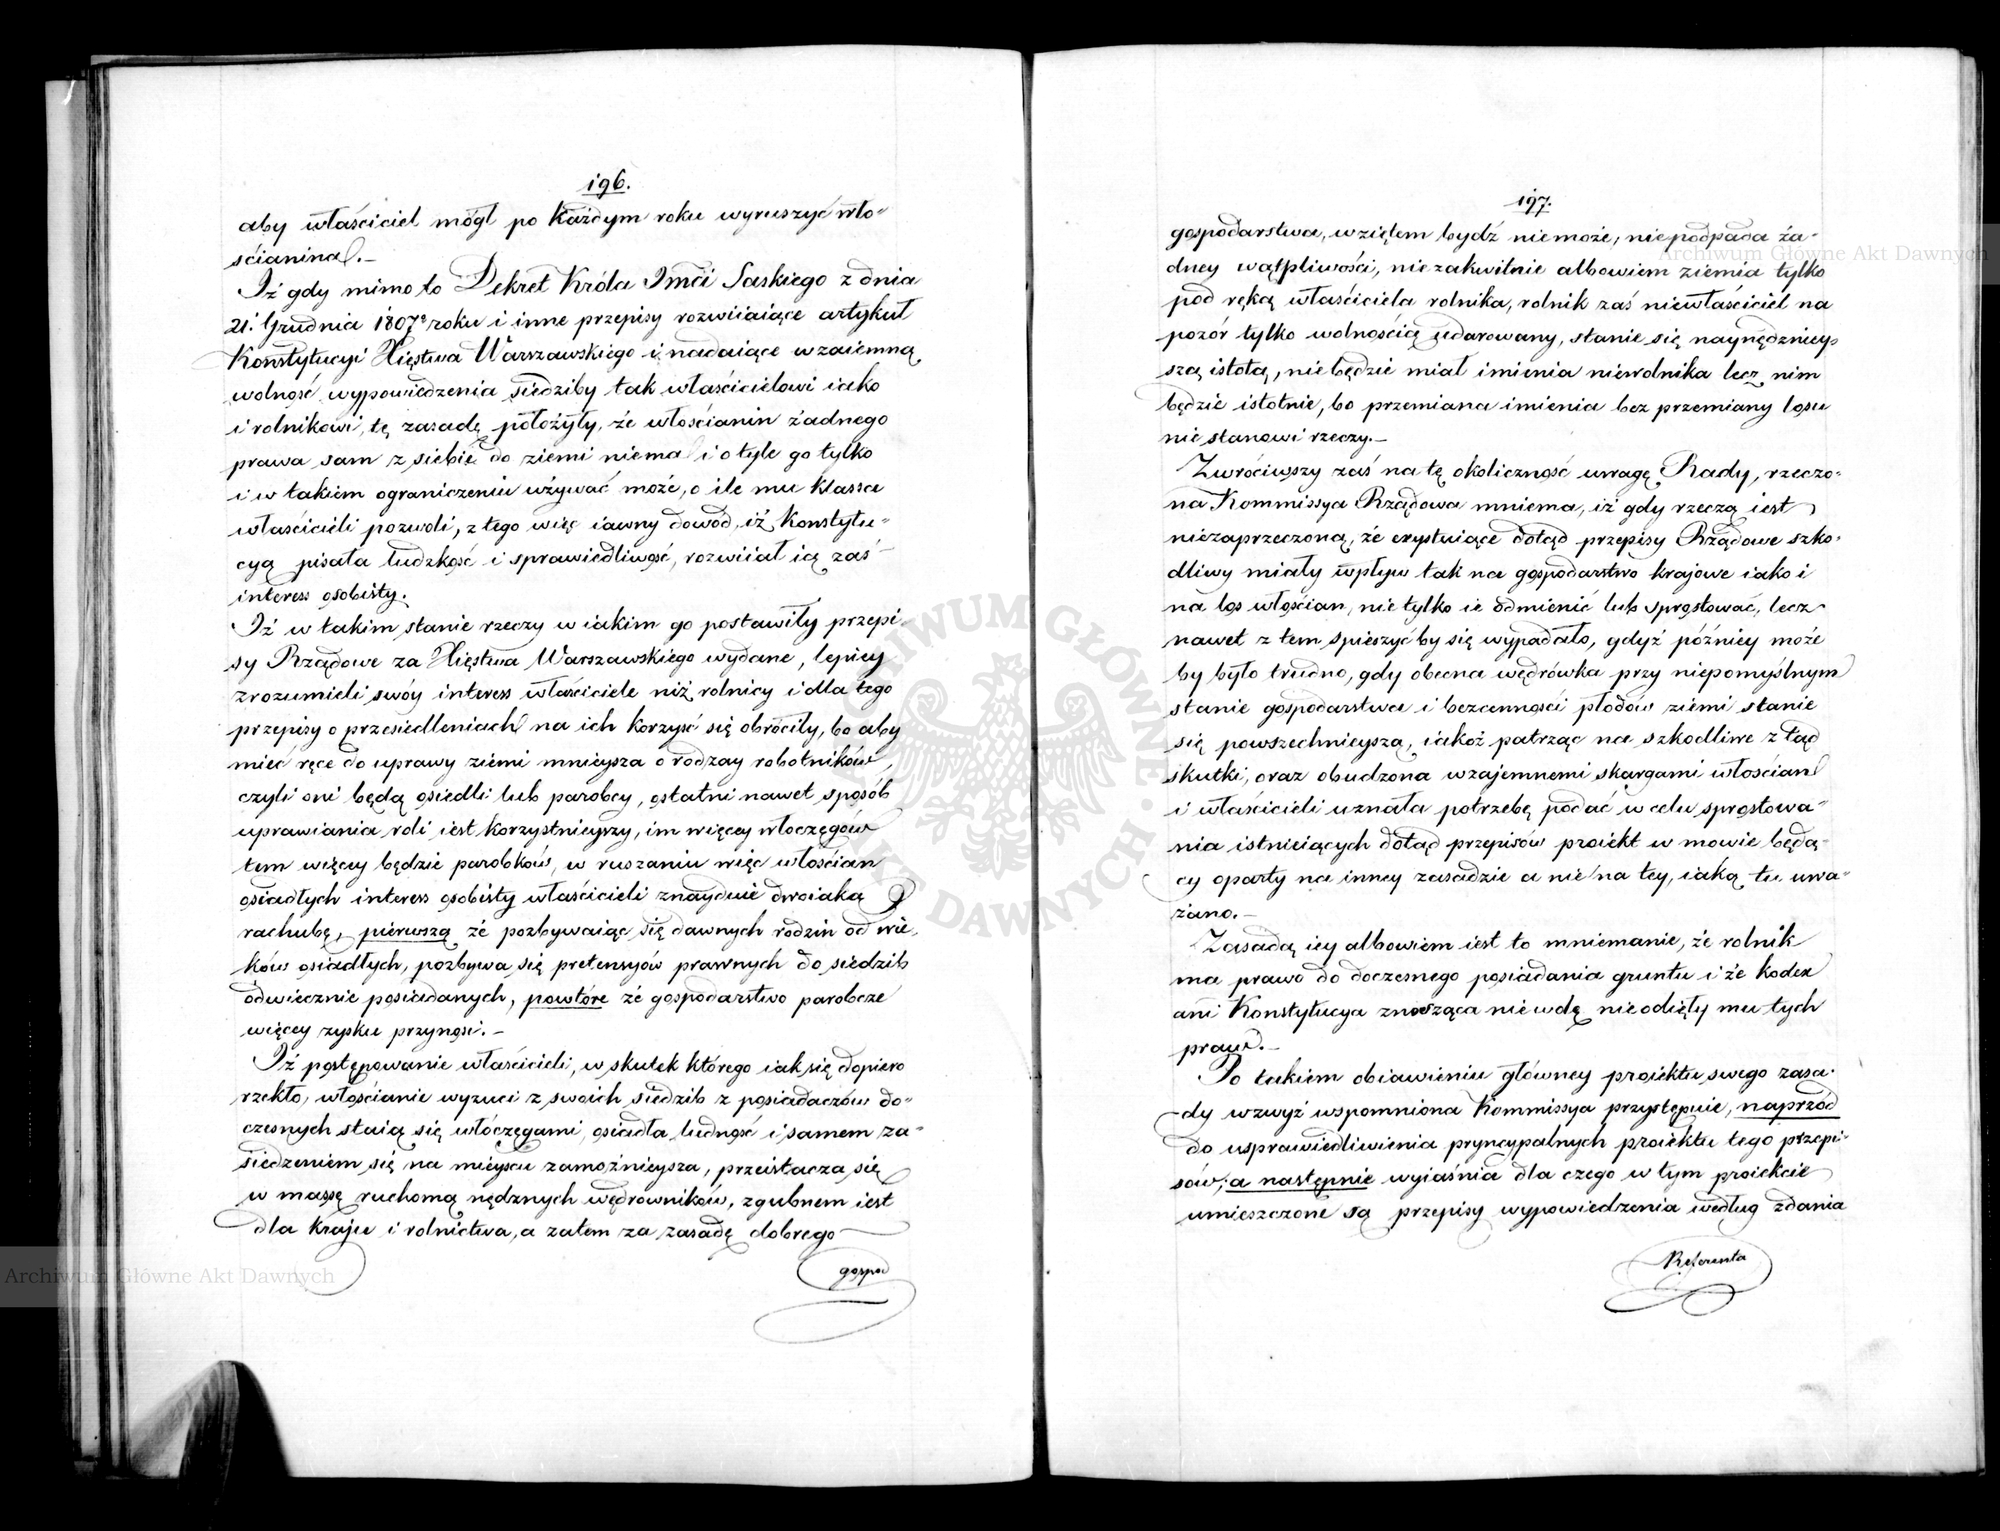 196.
aby właściciel mógł po każdym roku wyruszyć wło-
ścianina.-
Iż gdy mimo to Dekret Króla Jmći Saskiego z dnia
21. Grudnia 1807o roku i inne przepisy rozwiiaiące artykuł
Konstytucyi Xięstwa Warszawskiego i nadaiące wzaiemną
wolność wypowiedzenia siedziby tak właścicielowi iako
i rolnikowi, tę zasadę położyły, że włościanin żadnego
prawa sam z siebie do ziemi niema i o tyle go tylko
i w takiem ograniczeniu używać może, o ile mu klassa
właścicieli pozwoli, z tego więc iawny dowód, iż Konstytu-
cyą pisała ludzkość i sprawiedliwość, rozwiiał ią zaś
interess osobisty.
Iż w takim stanie rzeczy w iakim go postawiły przepi-
sy Rządowe za Xięstwa Warszawskiego wydane, lepiey
zrozumieli swóy interess właściciele niż rolnicy i dla tego
przepisy o przesiedleniach na ich korzyść się obróciły, bo aby
mieć ręce do uprawy ziemi mnieysza o rodzay robotników,
czyli oni będą osiedli lub parobcy, ostatni nawet sposób
uprawiania roli iest korzystnieyszy, im więcey włoczęgów
tem więcey będzie parobków, w ruszaniu więc włościan
osiadłych interess osobisty właścicieli znayduie dwoiaką
rachubę, pierwszą że pozbywaiąc się dawnych rodzin od wie-
ków osiadłych, pozbywa się pretensyów prawnych do siedzib
odwiecznie posiadanych, powtóre że gospodarstwo parobcze
więcey zysku przynosi.-
Iż postępowanie właścicieli, w skutek którego iak się dopiero
rzekło, włościanie wyzuci z swoich siedzib z posiadaczów do-
czesnych staią się włóczęgami, osiadła ludność i samem za-
siedzeniem się na mieyscu zamożnieysza, przeistacza się
w massę ruchomą nędznych wędrowników, zgubnem iest
dla kraju i rolnictwa, a zatem za zasadę dobrego
gospod
197.
gospodarstwa, wziętem bydź niemoże, niepodpada ża-
dney wątpliwości, niezakwitnie albowiem ziemia tylko
pod ręką właściciela rolnika, rolnik zaś niewłaściciel na
pozór tylko wolnością udarowany, stanie się naynędzniey-
szą istotą, niebędzie miał imienia niewolnika lecz nim
będzie istotnie, bo przemiana imienia bez przemiany losu
nie stanowi rzeczy.-
Zwróciwszy zaś na tę okoliczność uwagę Rady, rzeczo-
na Kommissya Rządowa mniema, iż gdy rzeczą iest
niezaprzeczoną, że exystuiące dotąd przepisy Rządowe szko-
dliwy miały wpływ tak na gospodarstwo krajowe iako i
na los włościan, nietylko ie odmienić lub sprostować, lecz
nawet z tem spieszyć by się wypadało, gdyż późniey może
by było trudno, gdy obecna wędrówka przy niepomyślnym
stanie gospodarstwa i bezcenności płodów ziemi stanie
się powszechnieyszą, iakoż patrząc na szkodliwe ztąd
skutki, oraz obudzona wzajemnemi skargami włościan
i właścicieli uznała potrzebę podać w celu sprostowa-
nia istnieiących dotąd przepisów proiekt w mowie będą-
cy oparty na inney zasadzie a nie na tey, iaką tu uwa-
żano.-
Zasadą iey albowiem iest to mniemanie, że rolnik
ma prawo do doczesnego posiadania gruntu i że kodex
ani Konstytucya znosząca niewolę nieodięły mu tych
praw.-
Po takiem obiawieniu główney proiektu swego zasa-
dy wzwyż wspomniona Kommissya przystępuie, naprzód
do usprawiedliwienia pryncypalnych proiektu tego przepi-
sów, a następnie wyiaśnia dla czego w tym proiekcie
umieszczone są przepisy wypowiedzenia według zdania
Referenta
Archiwum Główne Akt Dawnych
Archiwum Główne Akt Dawnych
ARCHIWUM GŁÓWNE AKT DAWNYCH